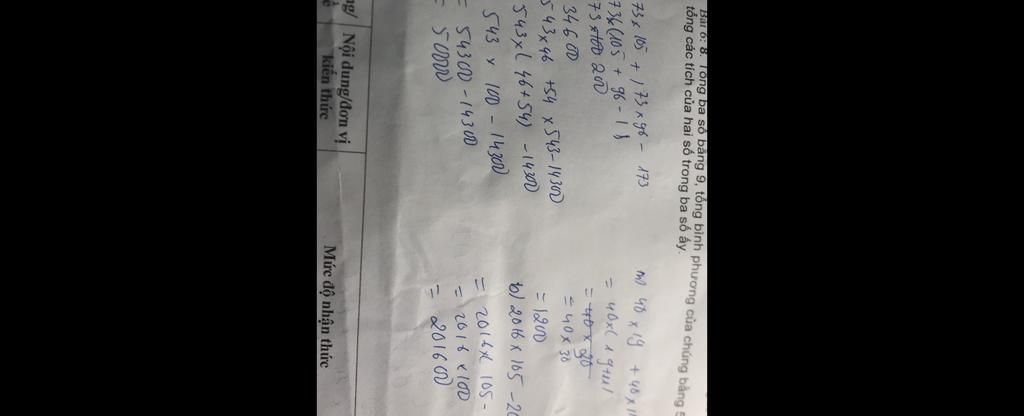 Bài 6: 8 Tổng ba số bằng 9, tổng bình phương của chúng bằng 5
tổng các tích của hai số trong ba số ấy.
73 x 105 + 173 x 96 - 173
73 x (105 + 96 - 1)
73 x 200
34600
543 x 46 + 54 x 543 - 14300
543 x (46 + 54) - 14300
543 x 100 - 14300
= 54300 - 14300
= 50000
a) 40 x 19 + 40 x 11
= 40 x 30
= 1200
b) 2016 x 105 - 20
= 2016 x (105 -
= 2016 x 100
= 201600
Nội dung/đơn vị
kiến thức
Mức độ nhận thức